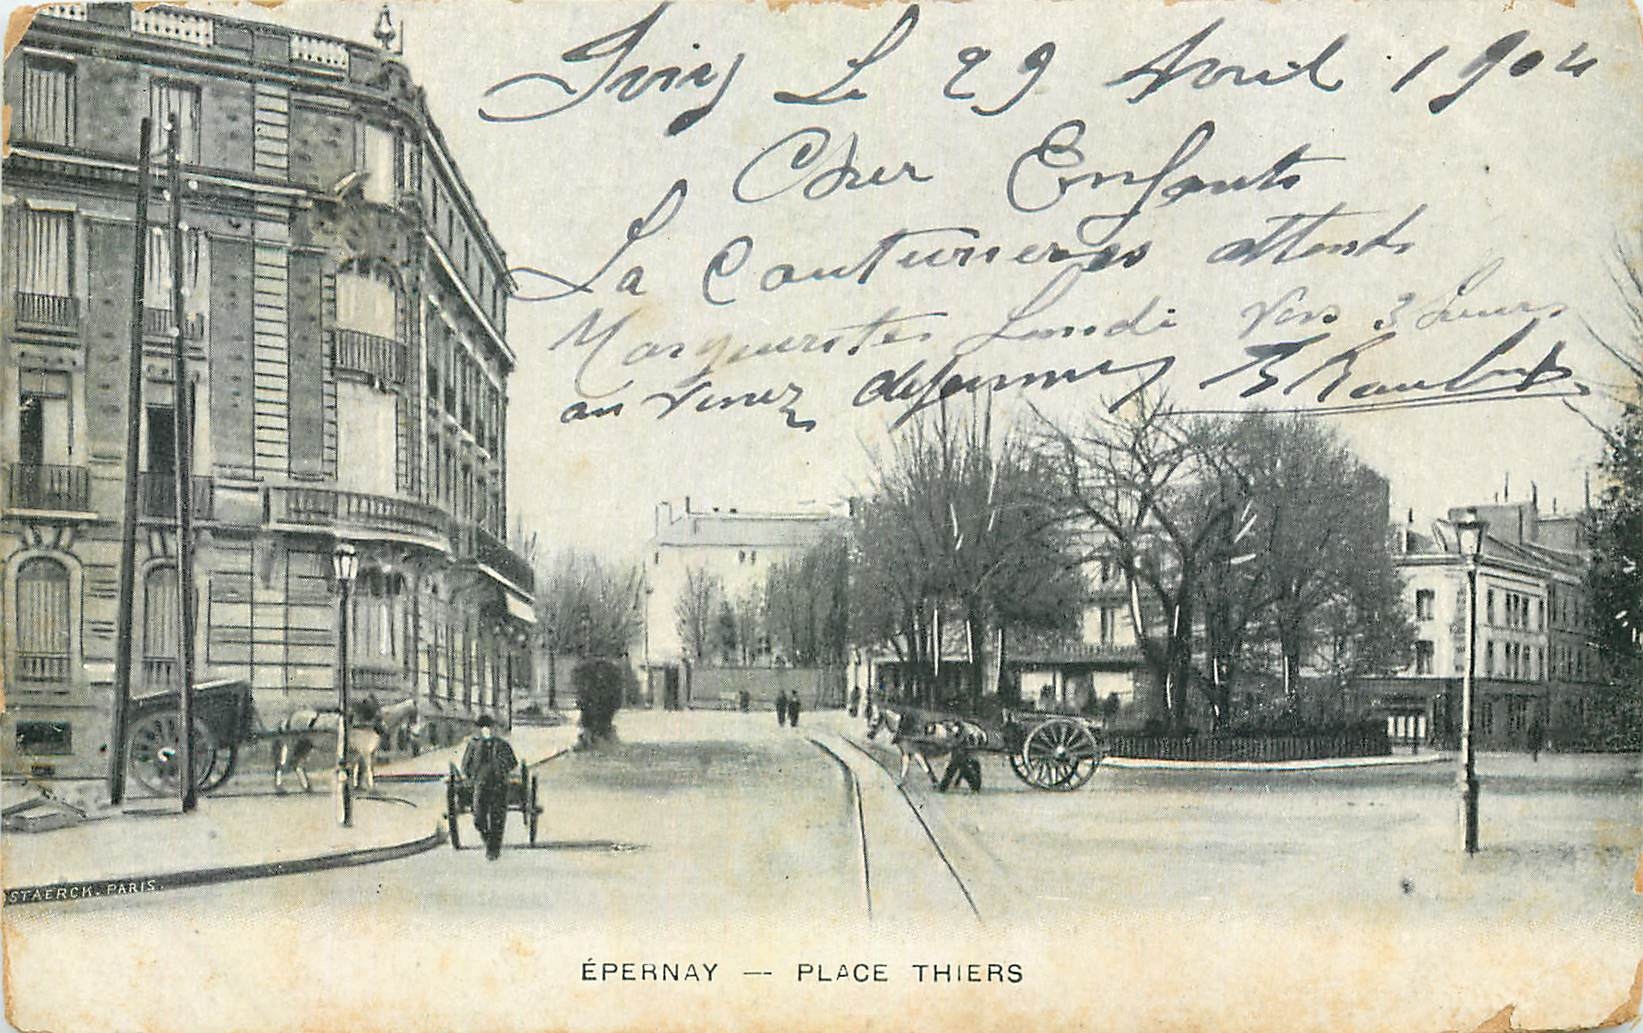 Ivry Le 29 Avril 1904
Cher Enfants
La Couturieres attends
Marguerites Lundi vers 3 heures
ou venez déjeunner
STAERCK. PARIS.
ÉPERNAY — PLACE THIERS